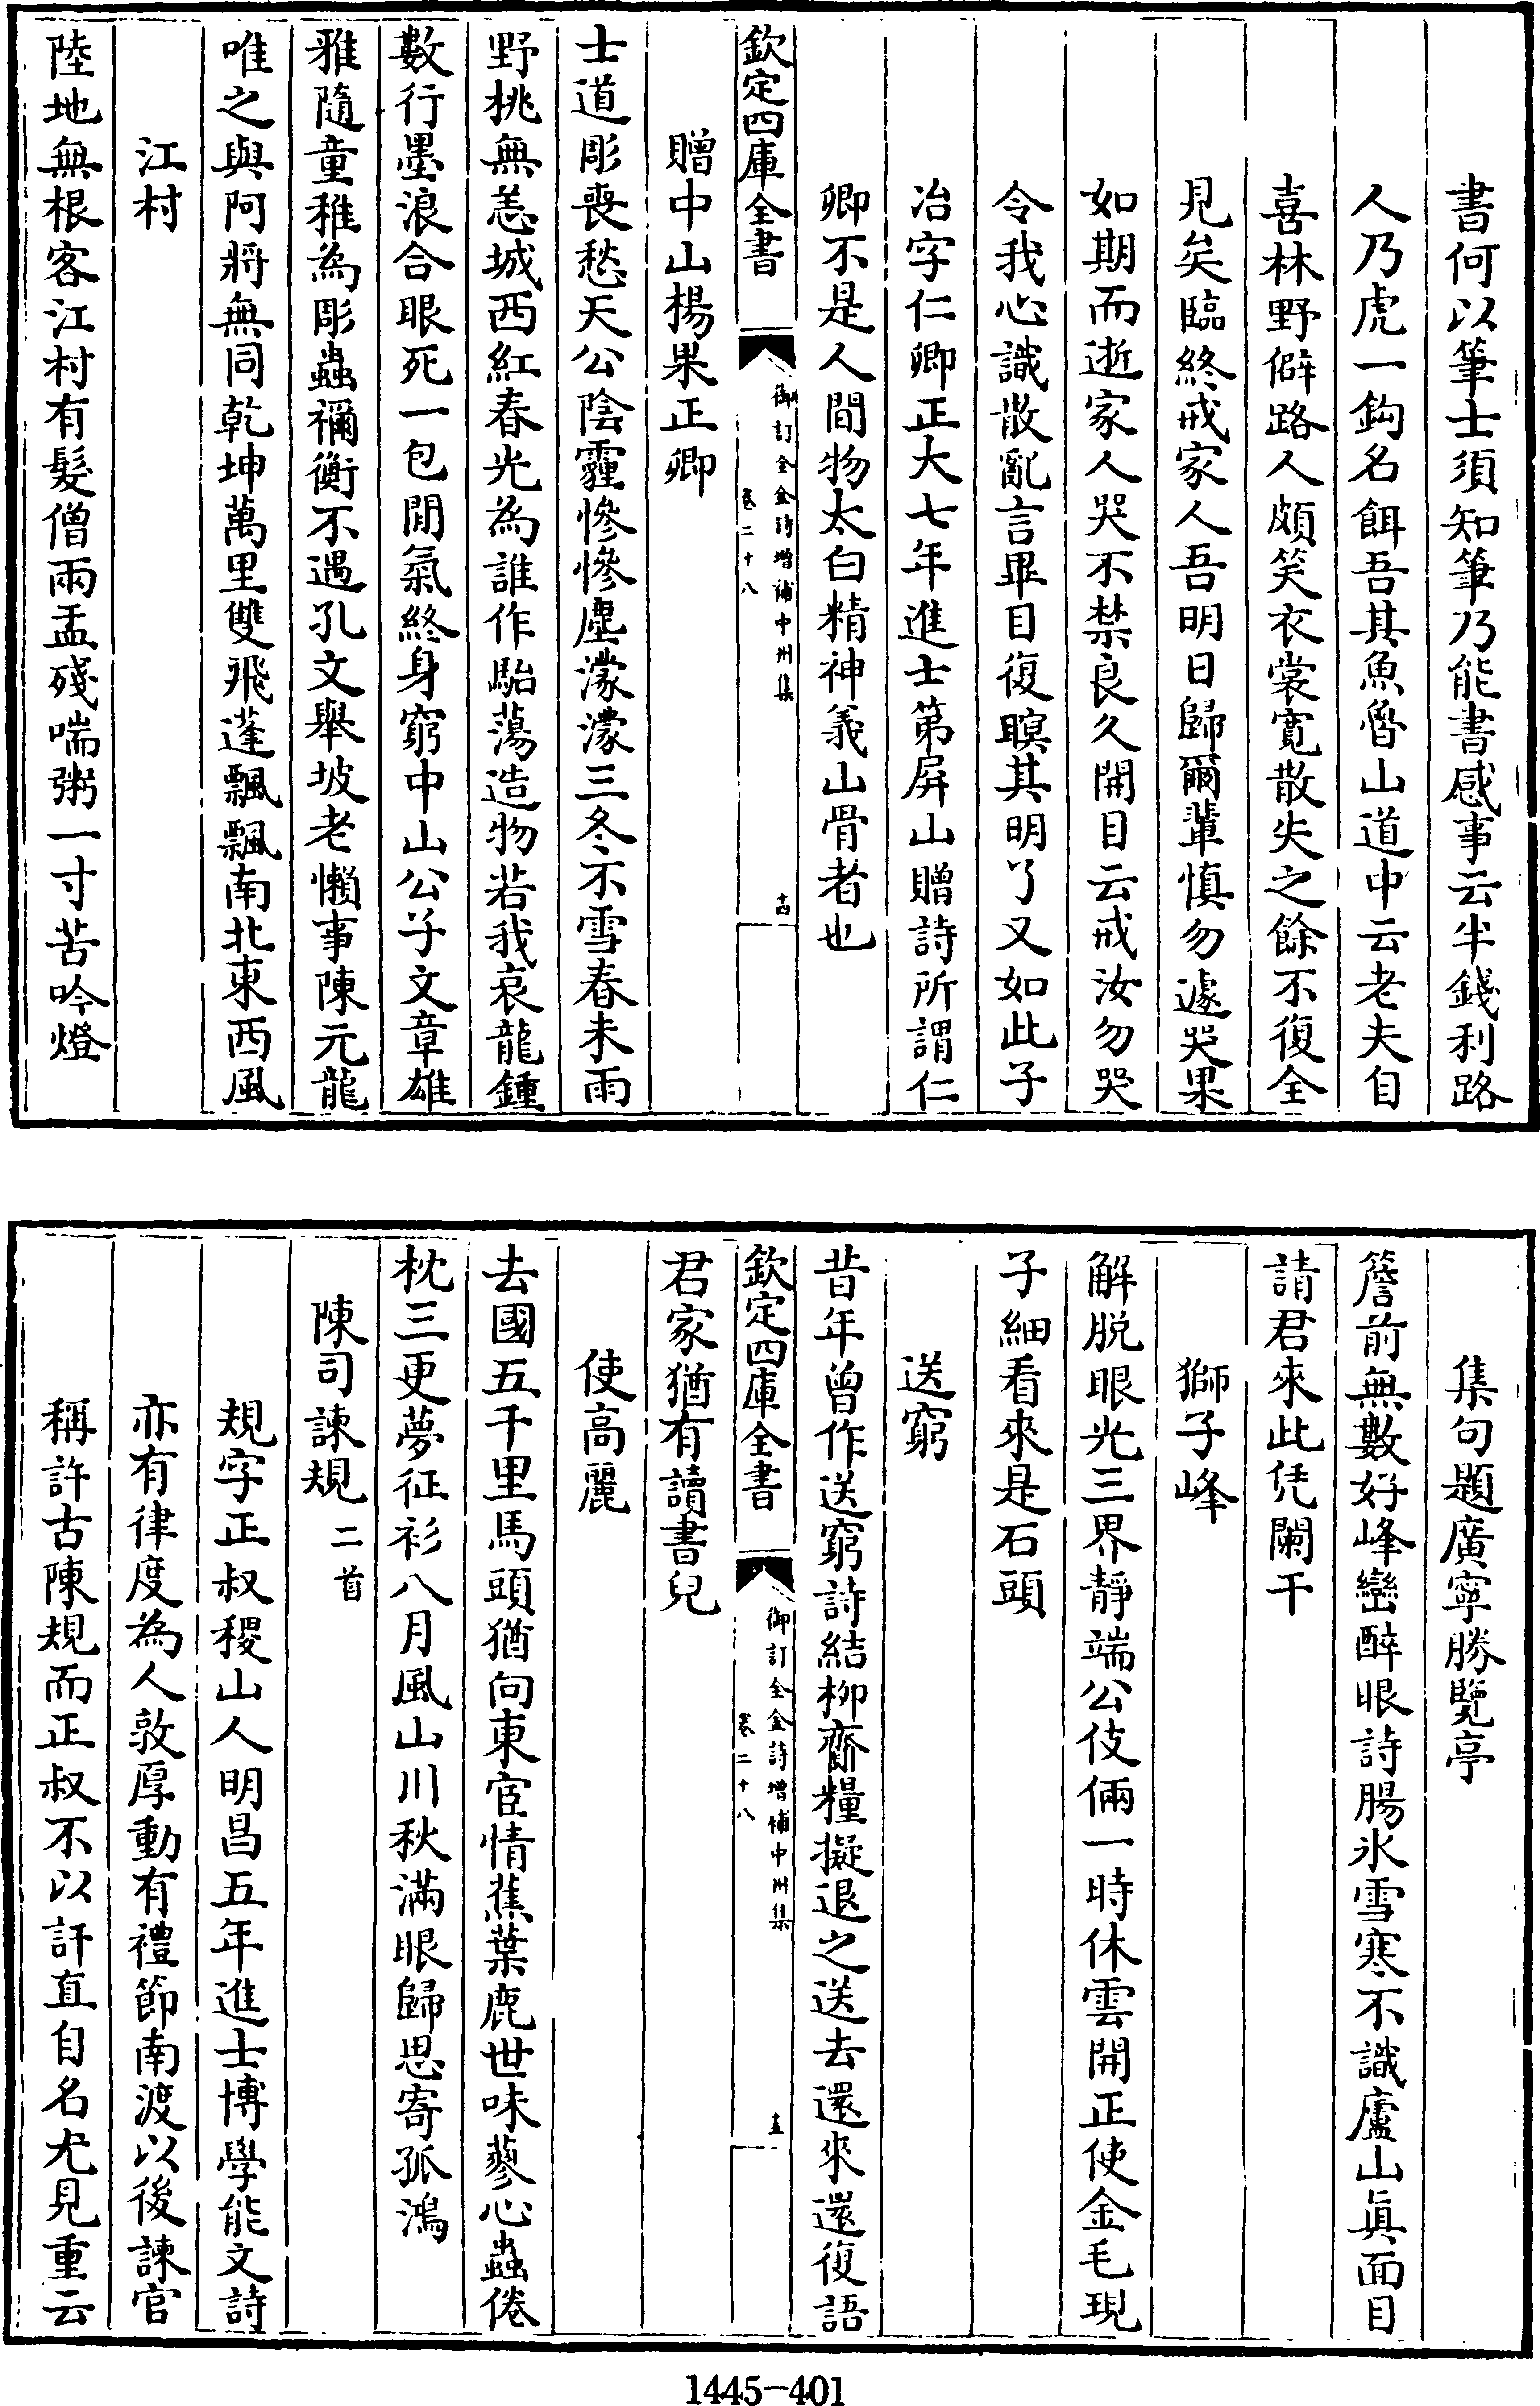 書何以筆士須知筆乃能書感事云半錢利路
人乃虎一鈎名餌吾其魚魯山道中云老夫自
喜林野僻路人頗笑衣裳寛散失之餘不復全
見矣臨終戒家人吾明日歸爾輩慎勿遽哭果
如期而逝家人哭不禁良久開目云戒汝勿哭
令我心識散亂言畢目復瞑其明了又如此子
冶字仁卿正大七年進士第屏山贈詩所謂仁
卿不是人間物太白精神義山骨者也
欽定四庫全書
御訂全金詩增補中州集
卷二十八
十四
贈中山楊果正卿
士道彫喪愁天公陰霾慘慘塵濛濛三冬不雪春未雨
野桃無恙城西紅春光為誰作駘蕩造物若我哀龍鍾
數行墨浪合眼死一包閒氣終身窮中山公子文章雄
雅隨童稚為彫蟲禰衡不遇孔文舉坡老懶事陳元龍
唯之與阿將無同乾坤萬里雙飛蓬飄飄南北東西風
江村
陸地無根客江村有髮僧兩盂殘喘粥一寸苦吟燈
集句題廣寧勝覽亭
簷前無數好峰巒醉眼詩腸氷雪寒不識廬山眞面目
請君來此凭闌干
獅子峰
解脱眼光三界靜端公伎倆一時休雲開正使金毛現
子細看來是石頭
送窮
昔年曾作送窮詩結栁齎糧擬退之送去還來還復語
欽定四庫全書
御訂全金詩增補中州集
卷二十八
十五
君家猶有讀書兒
使高麗
去國五千里馬頭猶向東宦情蕉葉鹿世味蓼心蟲倦
枕三更夢征衫八月風山川秋滿眼歸思寄孤鴻
陳司諫規 二首
規字正叔稷山人明昌五年進士博學能文詩
亦有律度為人敦厚動有禮節南渡以後諫官
稱許古陳規而正叔不以訐直自名尤見重云
1445-401